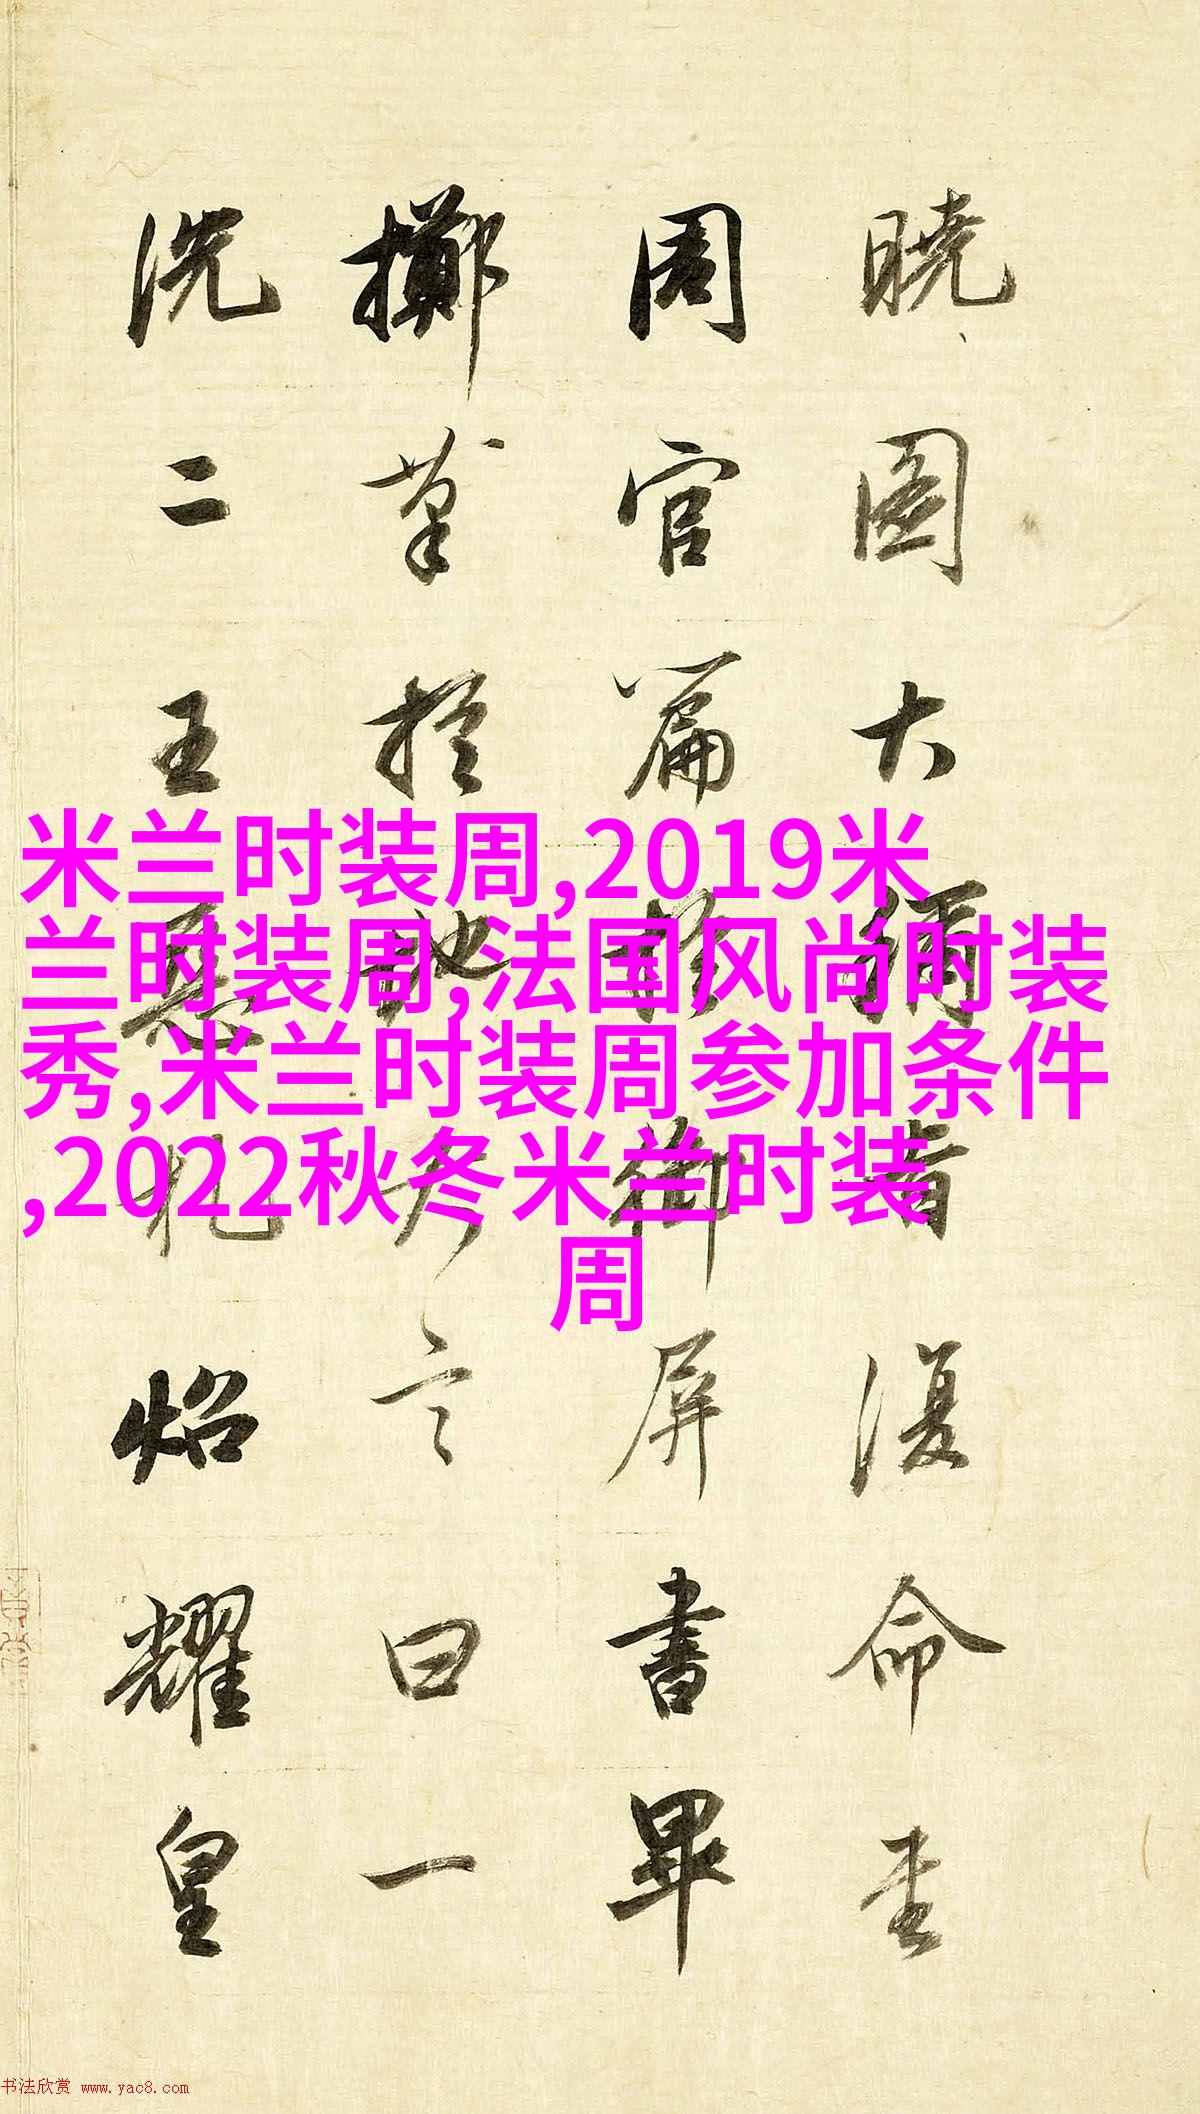 米兰时装周,2019米
兰时装周,法国风尚时装
秀,米兰时装周参加条件
,2022秋冬米兰时装
周
曉圖大復命
周官篇於御屏書畢
擲筆於地大言曰一
洗二王惡札炤耀皇
书法欣赏 www.yac8.com